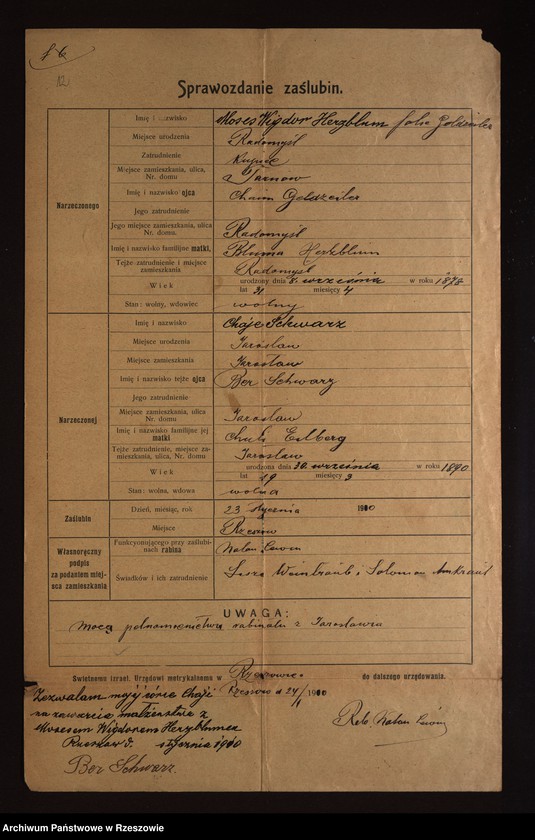 12
Sprawozdanie zaślubin.
Narzeczonego
Imię i nazwisko Moses Wigdor Herzblum false Geldzeiler
Miejsce urodzenia Radomyśl
Zatrudnienie kupiec
Miejsce zamieszkania, ulica, Nr. domu Tarnow
Imię i nazwisko ojca Chaim Geldzeiler
Jego zatrudnienie
Jego miejsce zamieszkania, ulica Nr. domu. Radomyśl
Imię i nazwisko familijne matki, Bluma Herzblum
Tejże zatrudnienie i miejsce zamieszkania Radomyśl
Wiek urodzony dnia 8. września w roku 1878
lat 31 miesięcy 4
Stan: wolny, wdowiec wolny
Narzeczonej
Imię i nazwisko Chaje Schwarz
Miejsce urodzenia Jaroslaw
Miejsce zamieszkania Jaroslaw
Imię i nazwisko tejże ojca Ber Schwarz
Jego zatrudnienie
Miejsce zamieszkania, ulica Nr. domu Jaroslaw
Imię i nazwisko familijne jej matki Eilberg
Tejże zatrudnienie, miejsce zamieszkania, ulica, Nr. domu Jaroslaw
Wiek urodzona dnia 30. września w roku 1890
lat 19 miesięcy 3
Stan: wolna, wdowa wolna
Zaślubin
Dzień, miesiąc, rok 23 stycznia 1910
Miejsce Rzeszów
Własnoręczny podpis za podaniem miejsca zamieszkania
Funkcyonującego przy zaślubinach rabina Natan Lewin
Świadków i ich zatrudnienie Weintraub i Solomon Amkraut
UWAGA:
Mocą pełnomocnictwa rabinatu z Jarosławia
Świetnemu izrael. Urzędowi metrykalnemu w Rzeszowie do dalszego urzędowania.
Rzeszow d 24/1 1910
Zezwalam mojej córce Chaji
na zawarcie małżeństwa z
Mosesem Wigdorem Herzblumem
Rzeszów d. stycznia 1910
Ber Schwarz.
Rab. Natan Lewin
Archiwum Państwowe w Rzeszowie